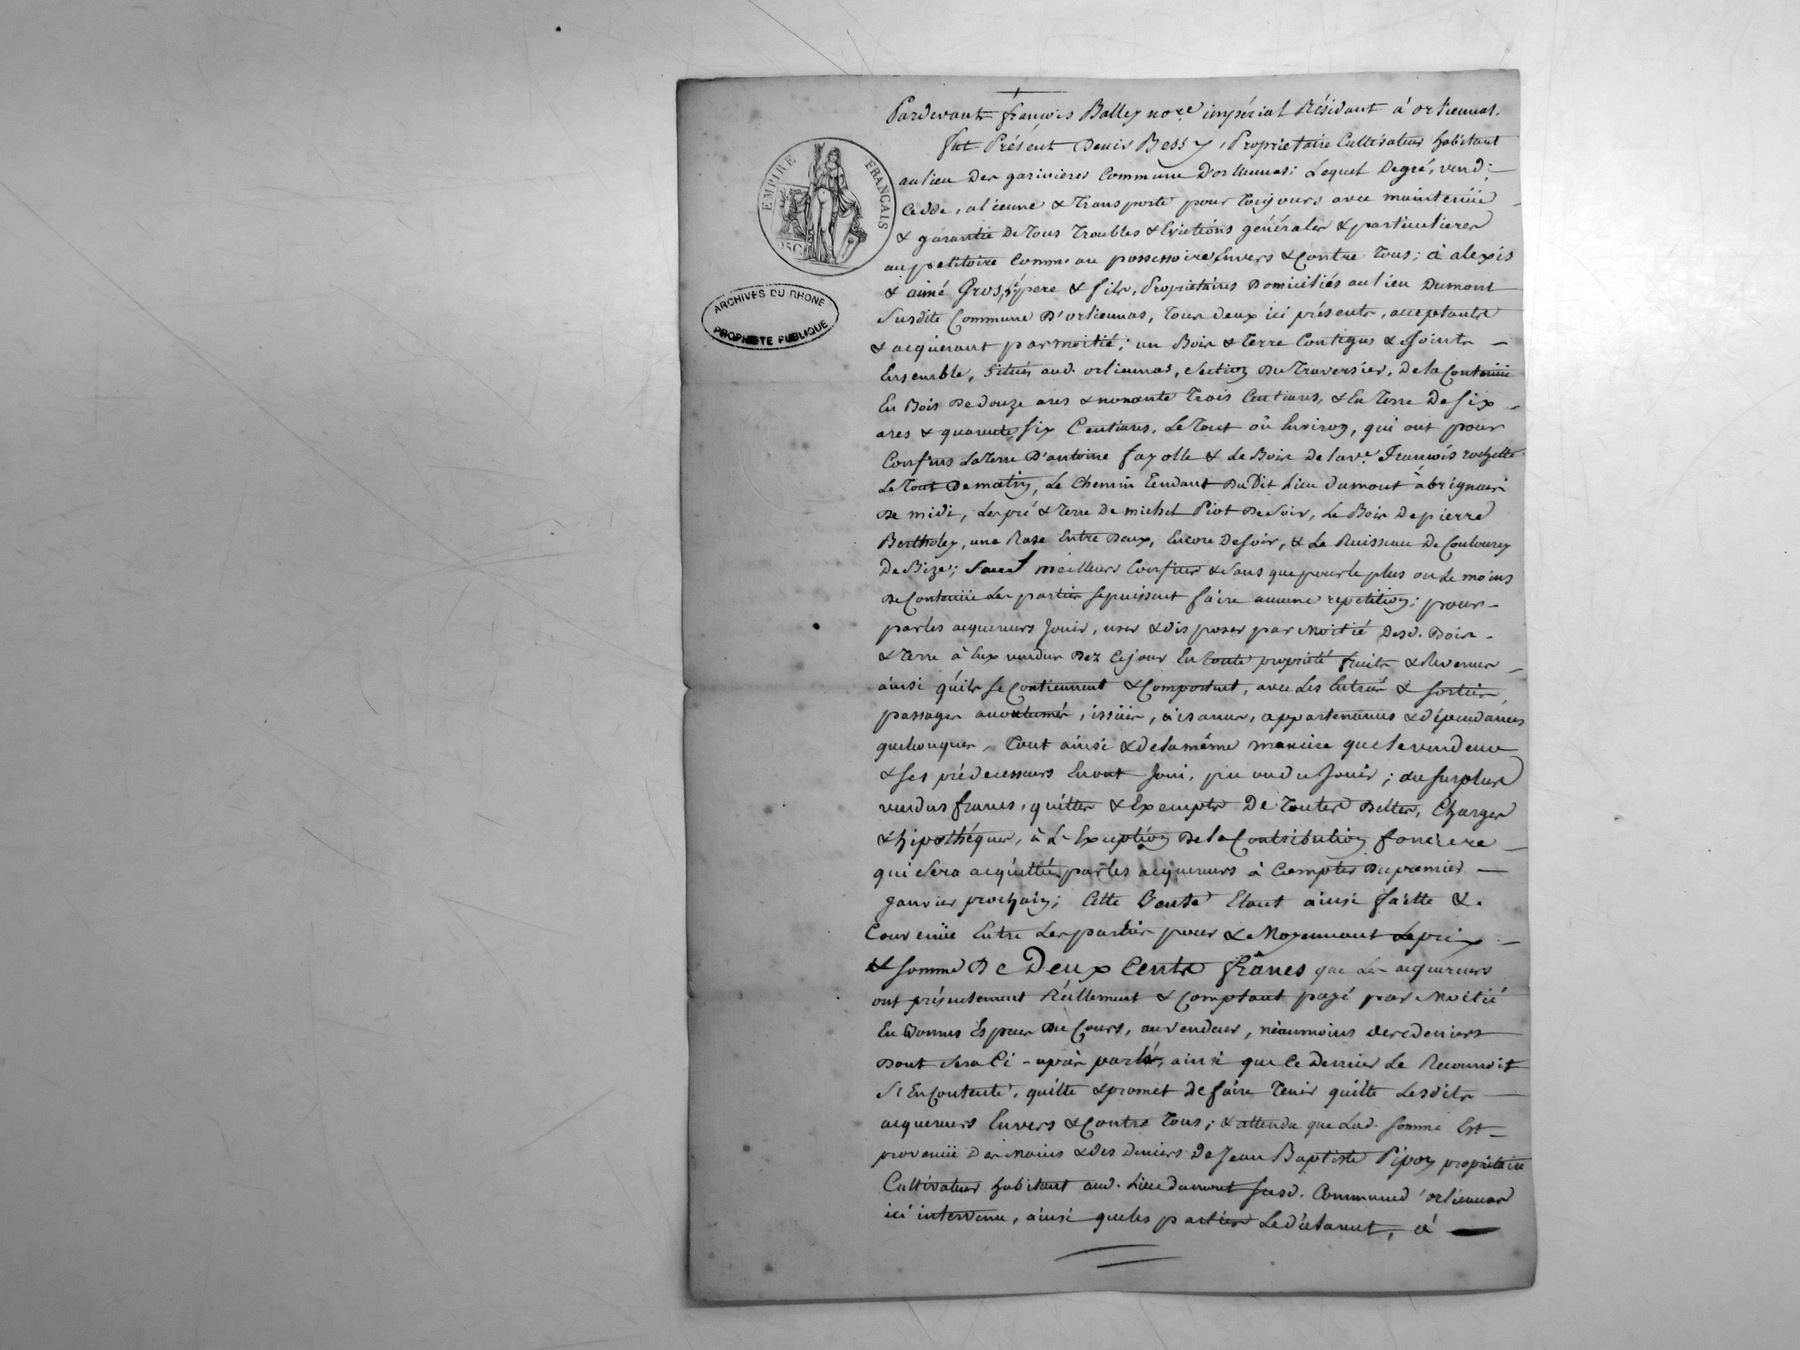 Pardevant françois Balley no.re impérial Résidant à orliennas.
fut Présent Denis Bessy, Proprietaire Cultivateur habitant
au lieu des garinieres Commune D'orliennas; Lequel Degré, vend,
Cedde, alienne & Transporte pour Toujours avec maintenüe
& garantie De Tous Troubles & Evictions générales & particulieres
au petitoire Comme au possessoire Envers & Contre Tous; à alexis
& aimé Gros, père & fils, Proprietaires Domiciliés au lieu Dumont
Susdite Commune D'orliennas, Tous deux ici présents, acceptants
& acquérant par moitié; un Bois & Terre Contigus & Joints
Ensemble, Situés aud. orliennas, Section Du Traversier, De la Contenüe
En Bois De douze ares & nonante Trois Centiares, & En Terre De Six
ares & quarante Six Centiares, Le Tout où Environ, qui ont pour
Confins La Terre D'antoine fayolle & Le Bois De la v.e François rochette
Le Tout De matin, Le Chemin Tendant Du Dit Lieu dumont à brignais
De midi, Les pré & Terre De michel Piot De Soir, Le Bois De pierre
Bertholey, une Rase Entre Deux, Encore De Soir, & Le Ruisseau De
De Bize; Sauf meilleurs Confins & Sans que pour le plus ou Le moins
De Contenüe Les parties Se puissent faire aucune repetition; pour
par les acquereurs Jouir, user & disposer par Moitié Desd. Bois
& Terre à Eux vendus Dez Ce jour En toute propriété fruits & Revenus
ainsi qu'ils Se Contiennent & Comportent, avec Les Entrées & Sorties
passages accoutumés, issües, aisances, appartenances & dépendances
quelconques, Tout ainsi & de la même maniere que le vendeur
& Ses prédecesseurs En ont Joui, pu ou du Jouir; au Surplus
vendus francs, quittes & Exempts De Toutes Dettes, Charges
& hipothéques, à L'Exception De la Contribution fonciere
qui Sera acquittée par les acquereurs à Compter Du premier
Janvier prochain; Cette Vente Etant ainsi faitte &
Convenüe Entre Les parties pour & Moyennant Le prix
& Somme De Deux Cents francs que Les acquereurs
ont présentement Réellement & Comptant payé par Moitié
En Bonnes Espèces Du Cours, au vendeur, néanmoins des deniers
Dont Sera Ci-après parlé, ainsi que Ce Dernier Le Reconnoit
S'En Contente, quitte & promet De faire Tenir quitte Lesdits
acquereurs Envers & Contre Tous; & attendu que Lad. Somme Est
provenüe Des Mains & des Deniers De Jean Baptiste Pipon propriétaire
Cultivateur habitant aud. Lieu dumont susd. Commune d'orliennas
ici intervenu, ainsi que les parties Le déclarent, à
EMPIRE FRANÇAIS
ARCHIVES DU RHONE
PROPRIETE PUBLIQUE